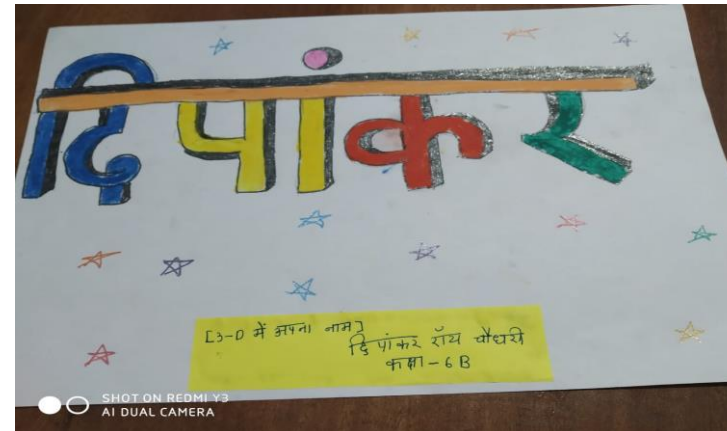 दिपांकर
[3-D में अपना नाम]
दिपांकर रॉय चौधरी
कक्षा-6 B
SHOT ON REDMI Y3
AI DUAL CAMERA